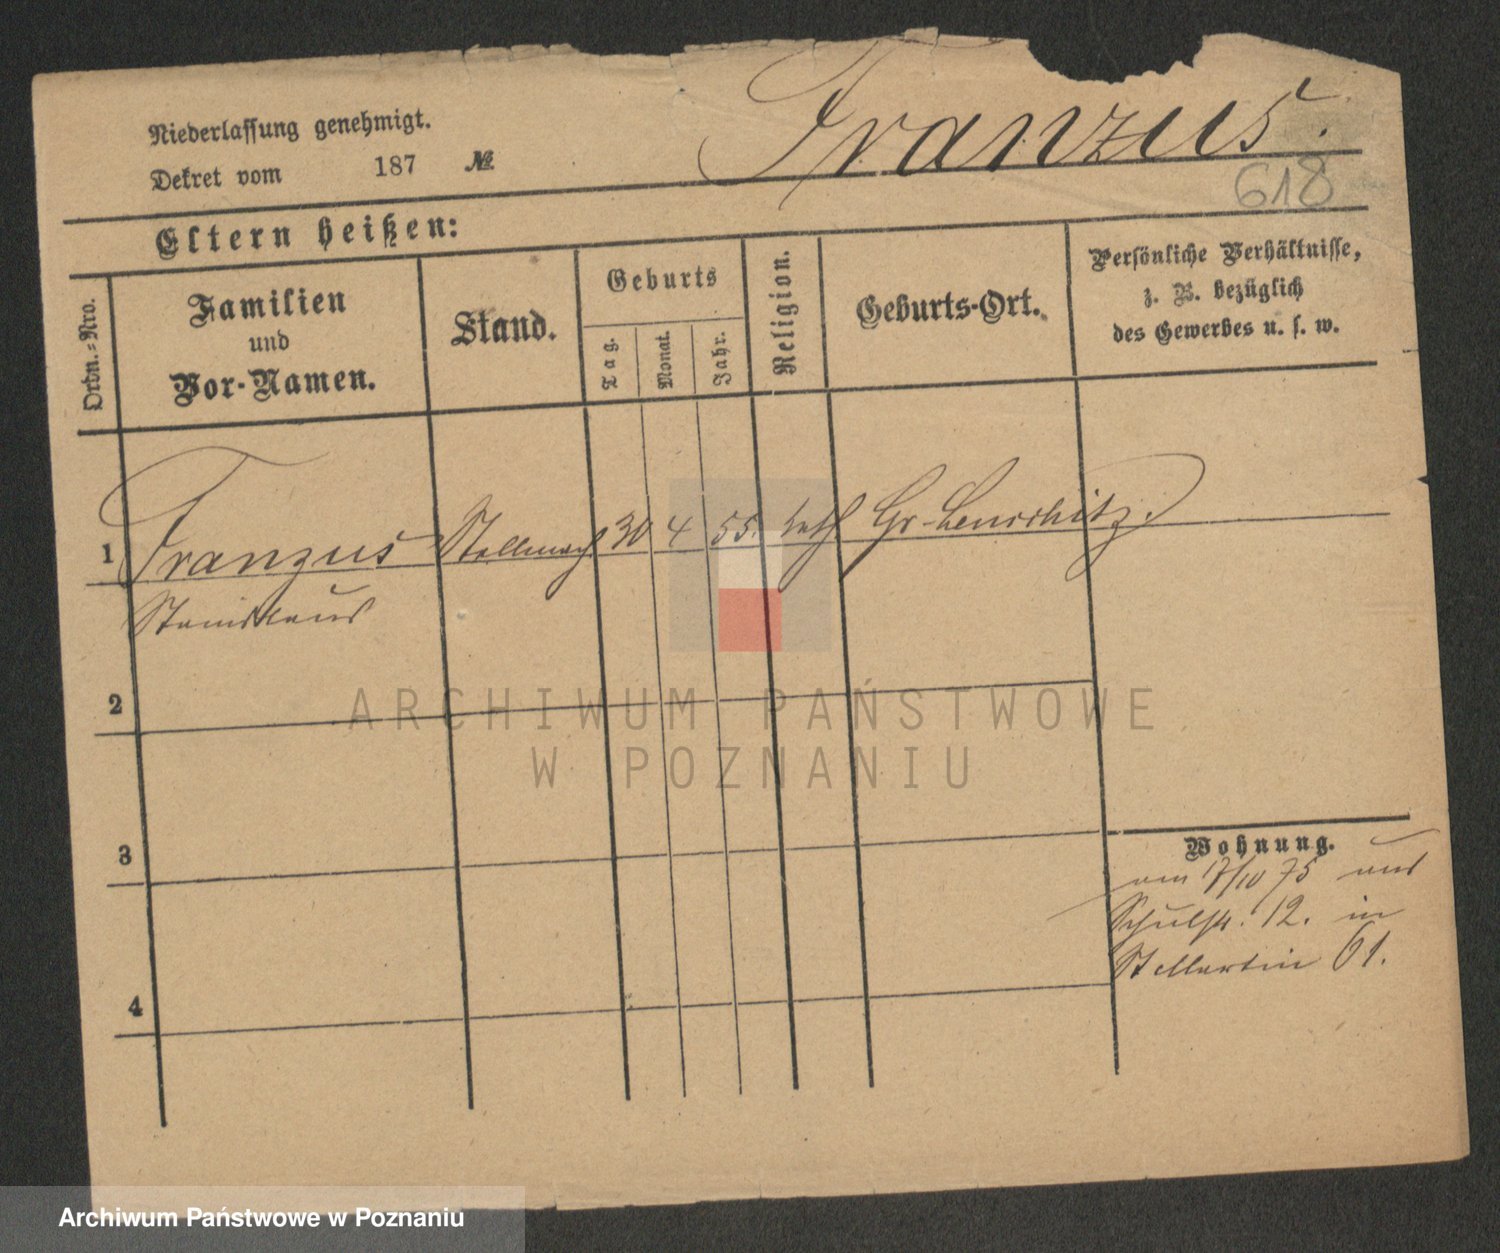 Niederlassung genehmigt.
Dekret vom 187 №
Franzus.
618
Eltern heißen:
Ordn.-Nro.
Familien
und
Vor-Namen.
Stand.
Geburts
Tag.
Monat.
Jahr.
Religion.
Geburts-Ort.
Persönliche Verhältnisse,
z. B. bezüglich
des Gewerbes u. s. w.
1 Franzus Stellmach 30 4 55. kath Gr-
Stanislaus
2
3
4
Wohnung.
am 17/10 75 aus
Schulstr. 12. in
St Martin 61.
ARCHIWUM PAŃSTWOWE
W POZNANIU
Archiwum Państwowe w Poznaniu